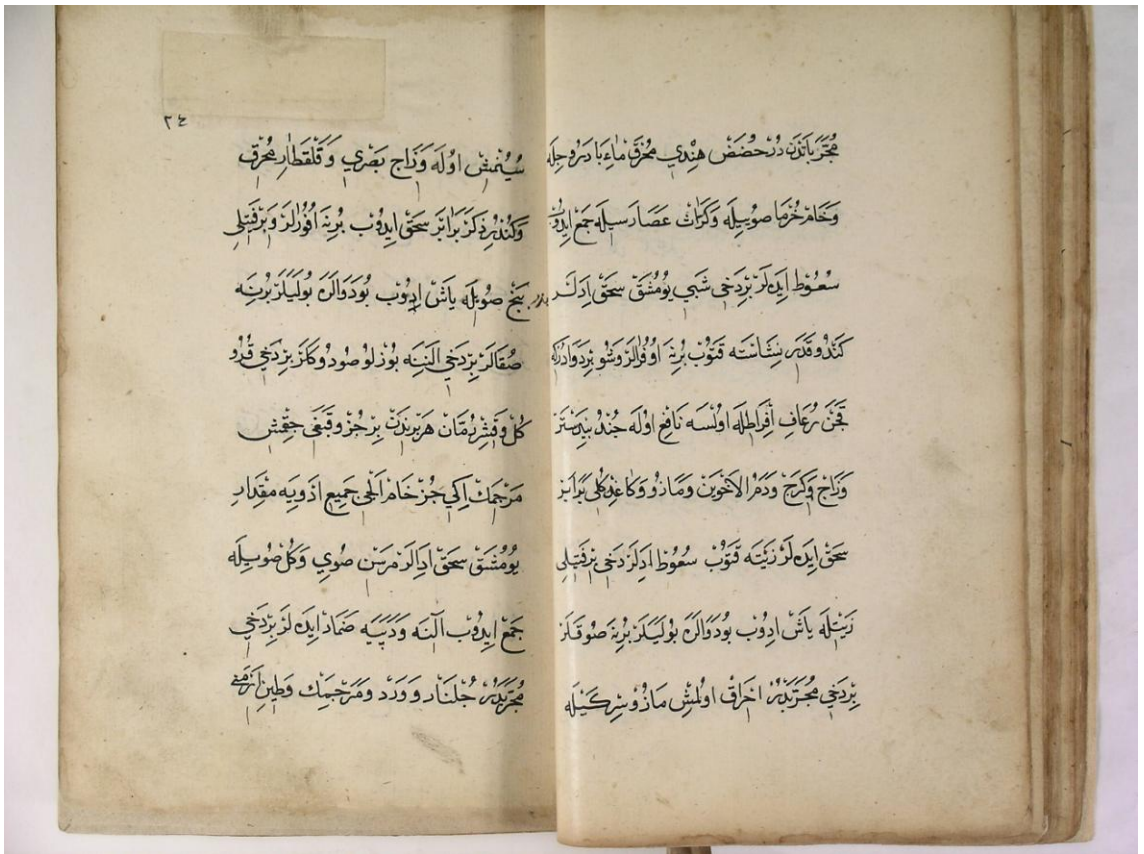 مُجَرَّبَاتدَن دُرْ حُضَضْ هِنْدِي مُحْرَقْ مَاءِ بَادَرُوجِلَه
وَخَامْ خُرْمَا صُويِيلَه وَكُرَّاثْ عَصَارَسِيلَه جَمْعْ ايِدُوبْ
سُعُوطْ ايدَه لَرْ بِرْدَخِي شَبِي يُومُشَقْ سَحَقْ اِدَلَرْ
كَنْدُو قَدَرْ نِشَاسْتَه قَتُوبْ بُرْنَه اُوفُرَالَرْ وَشُو بِرْدَوَادُرْكَه
قَچَنْ رُعَافْ اِفْرَاطِلَه اُولْسَه نَافِعْ اوُلَه جُنْدُ بِيدَسْتَرْ
وَزَاجْ وَكَرَجْ وَدَمُ الْاَخَوَيْنْ وَمَازُو وَكَاغِدْ كُلِي بَرَابَرْ
سَحَقْ ايدَه لَرْ زَيْتَه قَتُوبْ سُعُوطْ اِدَلَرْ دَخِي بِرْفَتِيلِي
زَيْتِلَه يَاشْ اِدُوبْ بُودَوَالَرَه بُولَيَلَرْ بُرْنَه صُوقَلَرْ
بِرْدَخِي مُجَرَّبْدُرْ اِحْرَاقْ اوُلْمِشْ مَازُو سِرْكَيْلَه
٢٤
سُيُنْمِشْ اوُلَه وَزَاجْ بَصْرِي وَقَلْقَطَارِ مُحْرَقْ
وَكُنْدُرْ ذَكَرْ بَرَابَرْ سَحَقْ ايِدُوبْ بُرْنَه اُفُوُرَالَرْ وَبِرْفَتِيلِي
بَنْجْ صُويِلَه يَاشْ اِدُوبْ بُودَوَالَرَه بُولَيَلَرْ بُرْنَه
صُقَالَرْ بِرْدَخِي اَلْنِنَه بُوزْلُو صُو دُوكَلَرْ بِرْدَخِي قُرُو
كُلْ وَقِشْرِ رُمَّانْ هَرْبِرِنْدَنْ بِرْجُزْؤ قَبُغِي چِقْمِشْ
مَرْجِمَكْ اِكِي جُزْ خَامْ اَلْچِي جَمِيعِ اَدْوِيَه مِقْدَارِ
يُومُشَقْ سَحَقْ اِدَالَرْ مَرْسِنْ صُويِ وَكُلْ صُويِيلَه
جَمْعْ ايِدُوبْ آلْنِنَه وَدَپَيَه ضَمَادْ ايدَه لَرْ بِرْدَخِي
مُجَرَّبْدُرْ جُلْنَارْ وَوَرْدْ وَمَرْجِمَكْ وَطِينِ اَرْمَنِي